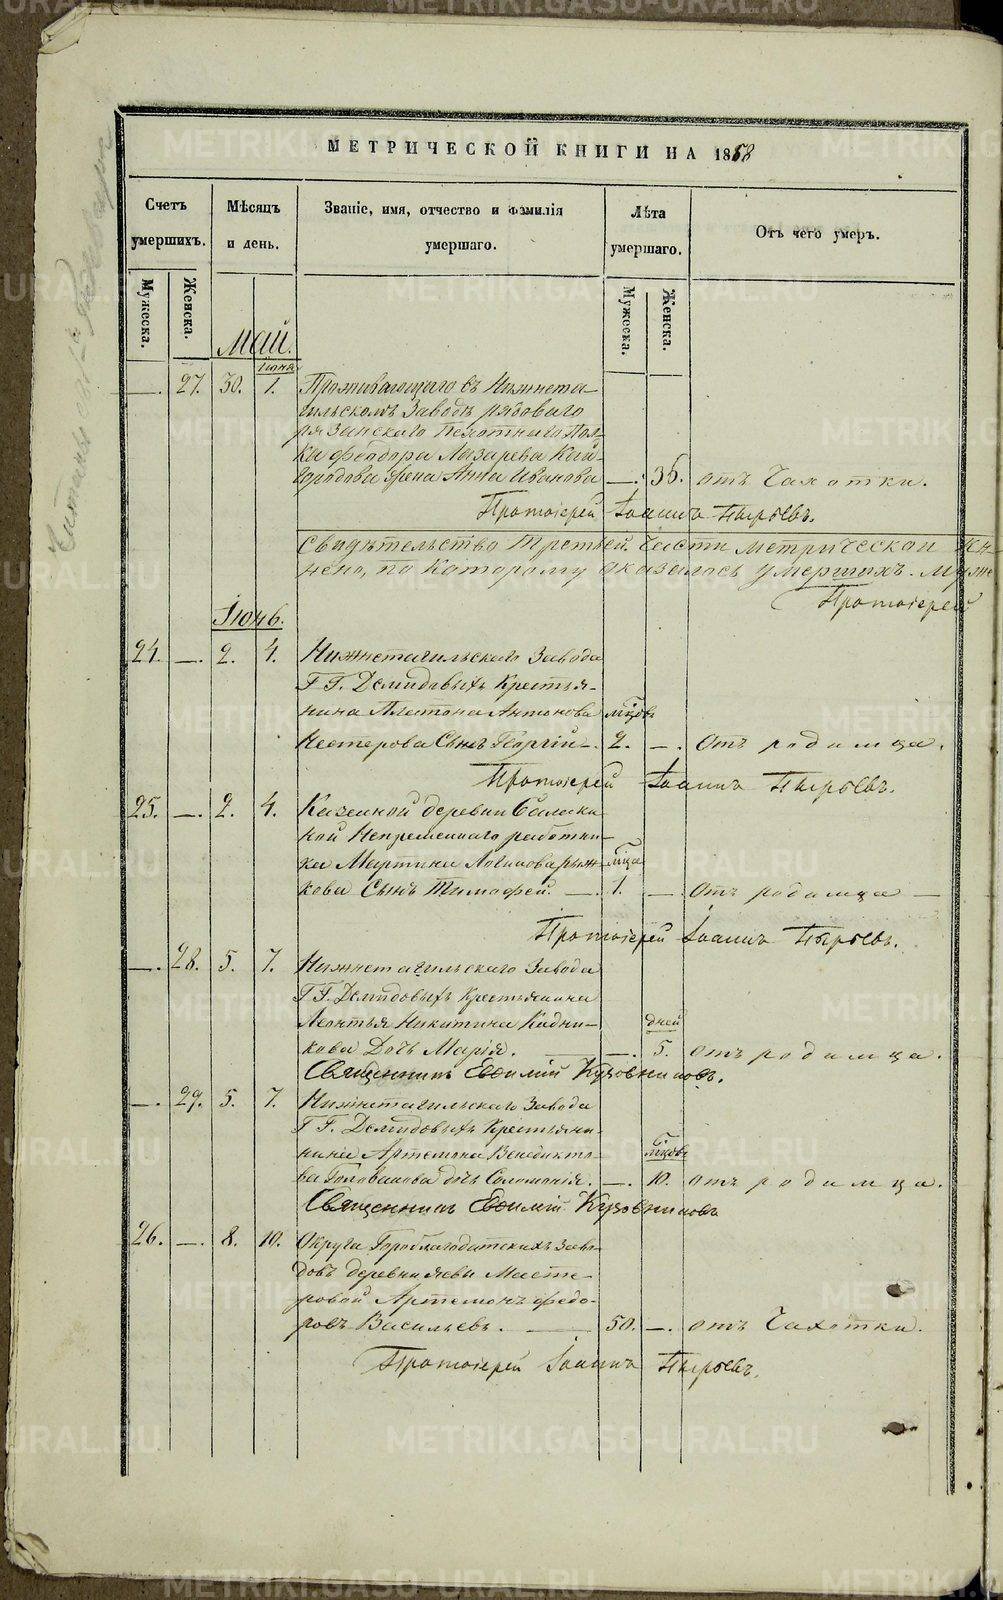 МЕТРИЧЕСКОЙ КНИГИ НА 1858
Счетъ умершихъ.
Мужеска.
Женска.
Мѣсяцъ и день.
Званіе, имя, отчество и фамилія умершаго.
Лѣта умершаго.
Мужеска.
Женска.
Отъ чего умеръ.
Май.
Іюня
—. 27. 30. 1. Проживающаго въ Нижнета-
гильскомъ Заводѣ рядоваго
рязанскаго Пехотнаго Пол-
ка Феодора Лазарева Кай-
городова жена Анна Иванова —. 36. отъ Чахотки.
Протоіерей Іоаннъ Пырьевъ.
Свидѣтельство Третьей Части метрической Кн
чено, по Которому оказалось умершихъ. Муже
Протоіерей
Іюнь.
24. —. 2. 4. Нижнетагильскаго Завода
Г.Г. Демидовыхъ Крестья-
нина Платона Антонова мѣцов
Нестерова Сынъ Георгій —. 2. —. Отъ родимца.
Протоіерей Іоаннъ Пырьевъ.
25. —. 2. 4. Казенной деревни Балаки
ной Непременнаго работни-
ка Мартина Логинова рыж- мѣца
кова Сынъ Тимофей. —. 1. — Отъ родимца —
Протоіерей Іоаннъ Пырьевъ.
—. 28. 5. 7. Нижнетагильскаго Завода
Г.Г. Демидовыхъ Крестьянина
Леонтья Никитина Кадни- дней
кова Дочь Марія. —. 5. отъ родимца.
Священникъ Евфимій Кузовниковъ.
—. 29. 5. 7. Нижнетагильскаго Завода
Г.Г. Демидовыхъ Крестьяни-
нина Артемона Венедикто- мѣцовъ
ва Голованова дочь Соломонія. —. 10. отъ родимца.
Священникъ Евфимій Кузовниковъ
26. —. 8. 10. Округа Гороблагодатскихъ Заво-
довъ деревни Масте-
ровой Артемонъ Федо-
ровъ Васильевъ. 50. —. отъ Чахотки.
Протоіерей Іоаннъ Пырьевъ.
METRIKI.GASO-URAL.RU